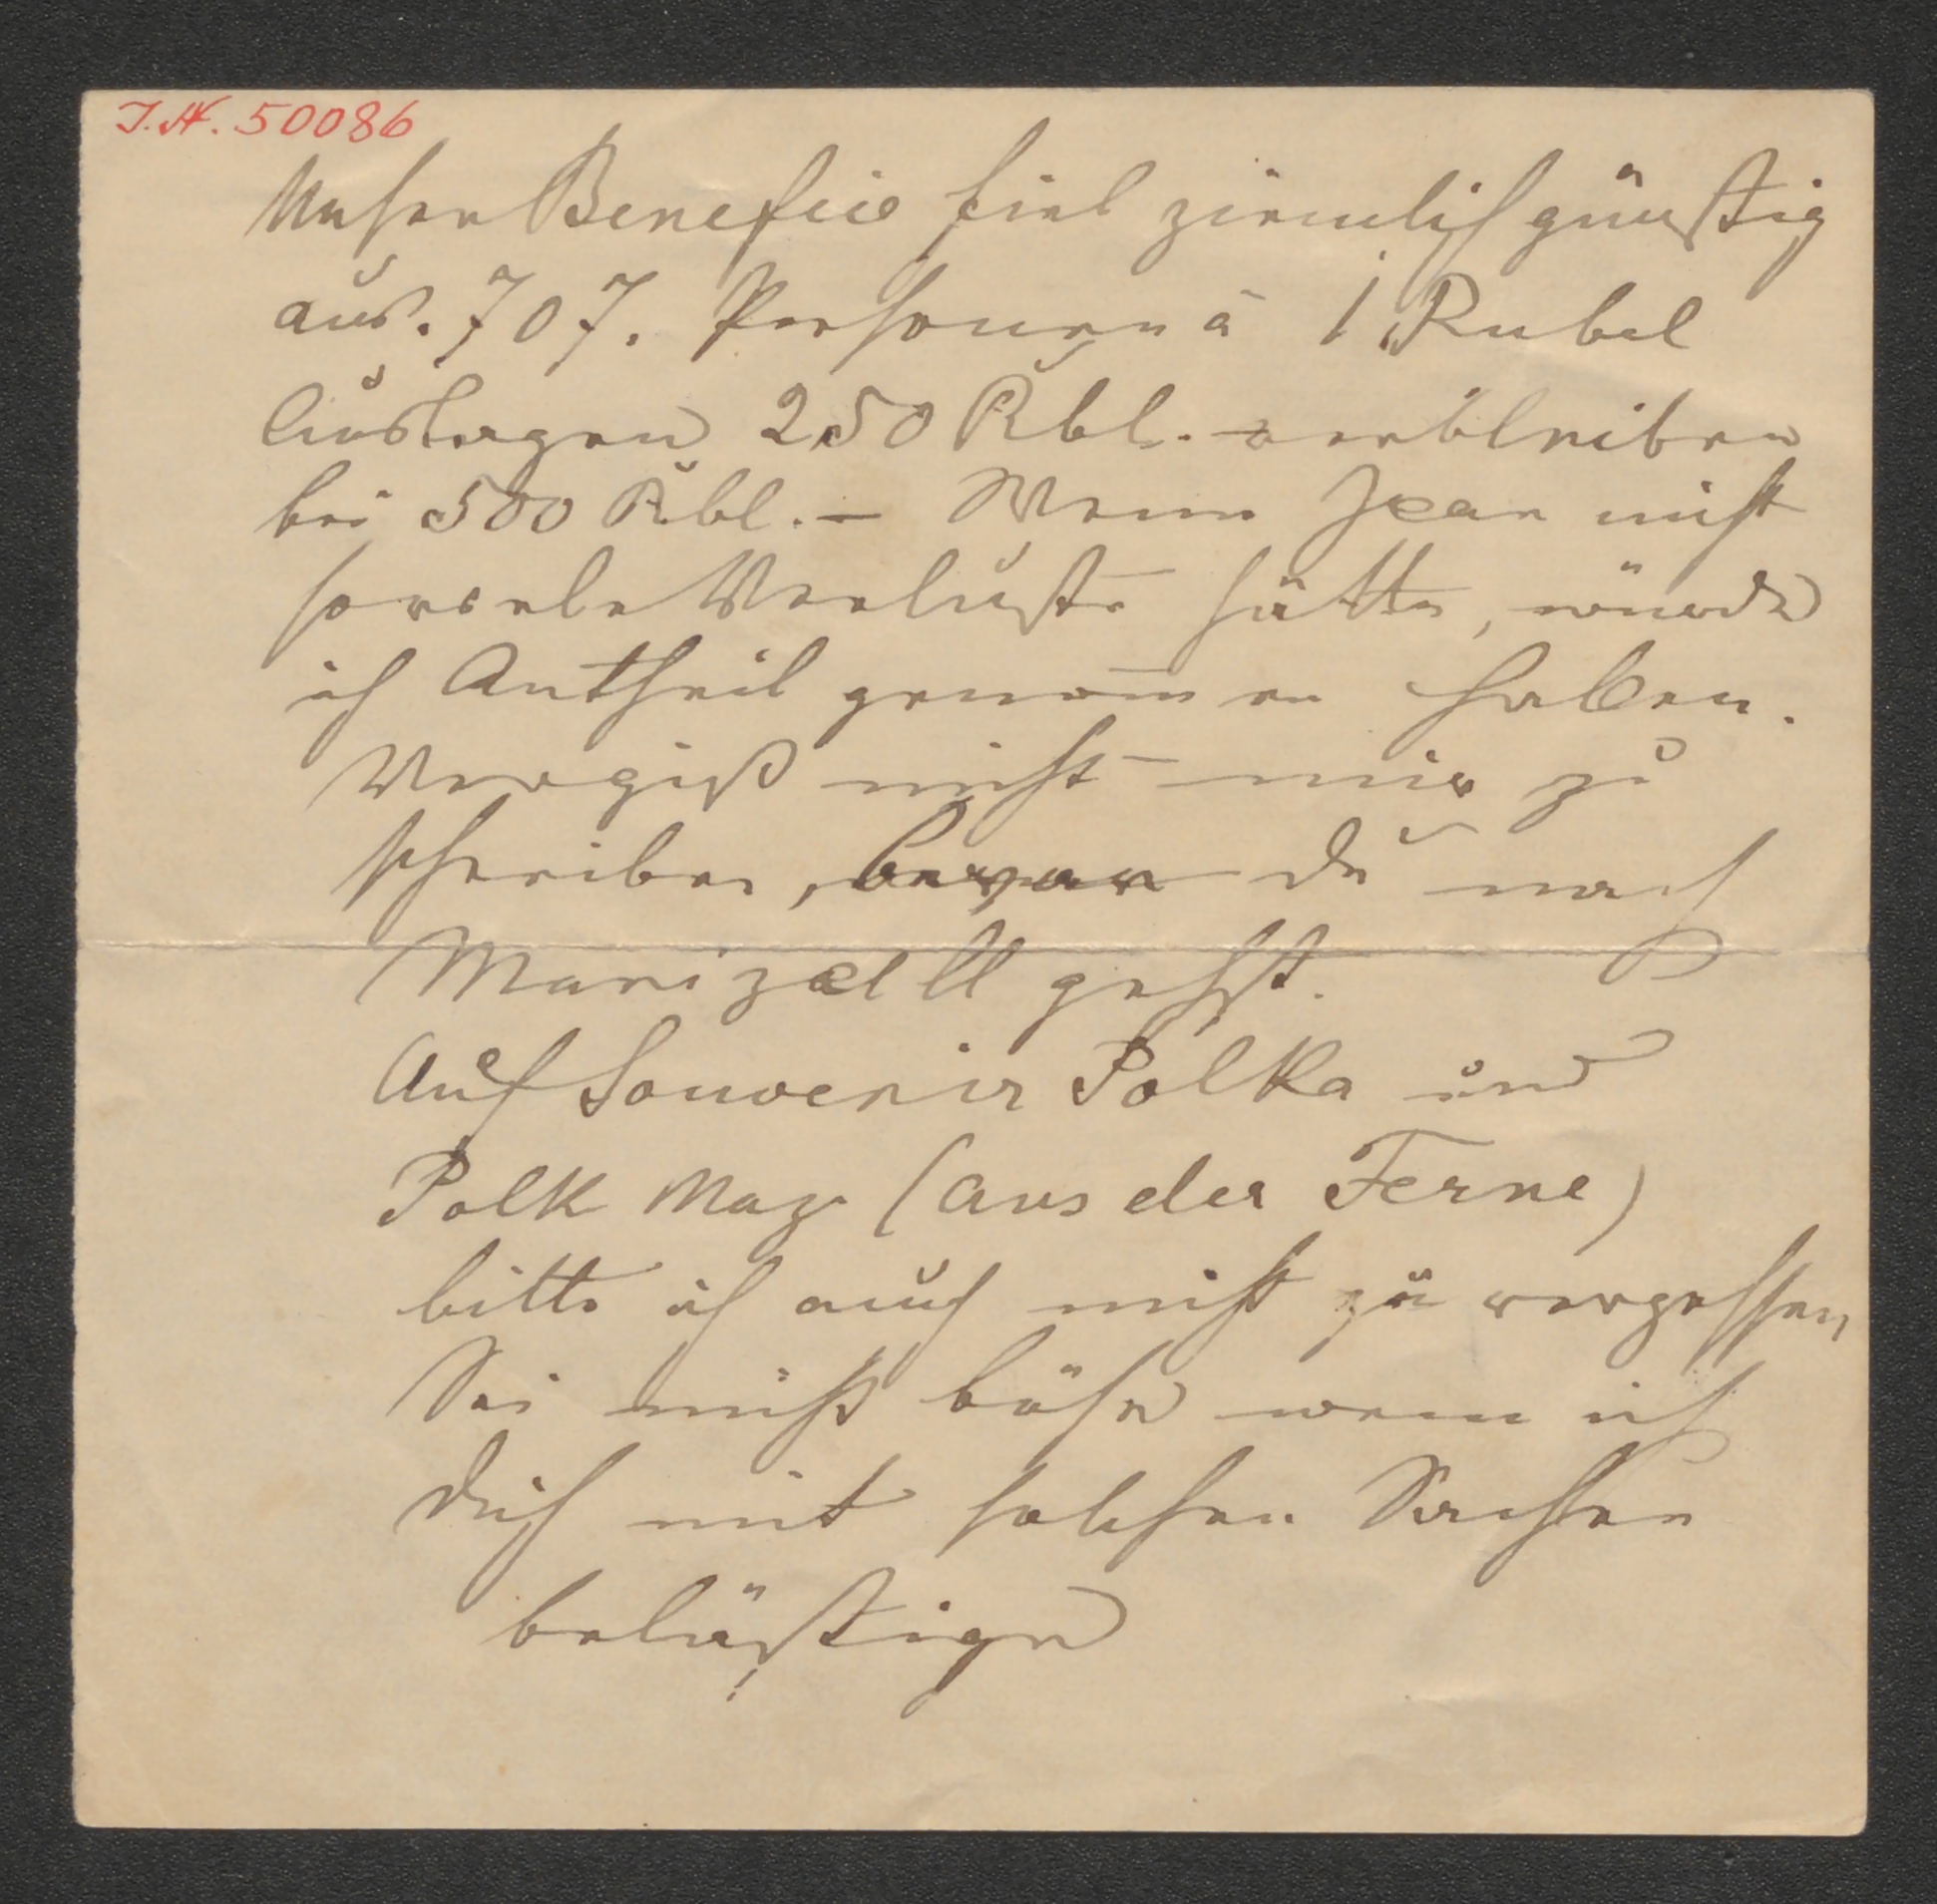 J.N. 50086
Unser Benefice fiel ziemlich günstig
aus. 707. Personen à 1 Rubel
Auslagen 250 Rbl. verbleiben
bei 500 Rbl. – Wenn Jean nicht
Verluste hätte, würde
ich Antheil genom̄en haben.
Vergiß nicht mir zu
schreiben, bevor du nach
Marizell gehst.
Auf Souvenir Polka und
Polk Maz (aus der Ferne)
bitte ich auch nicht zu vergessen
Sei nicht böse wenn ich
dich mit solchen Sachen
belästige